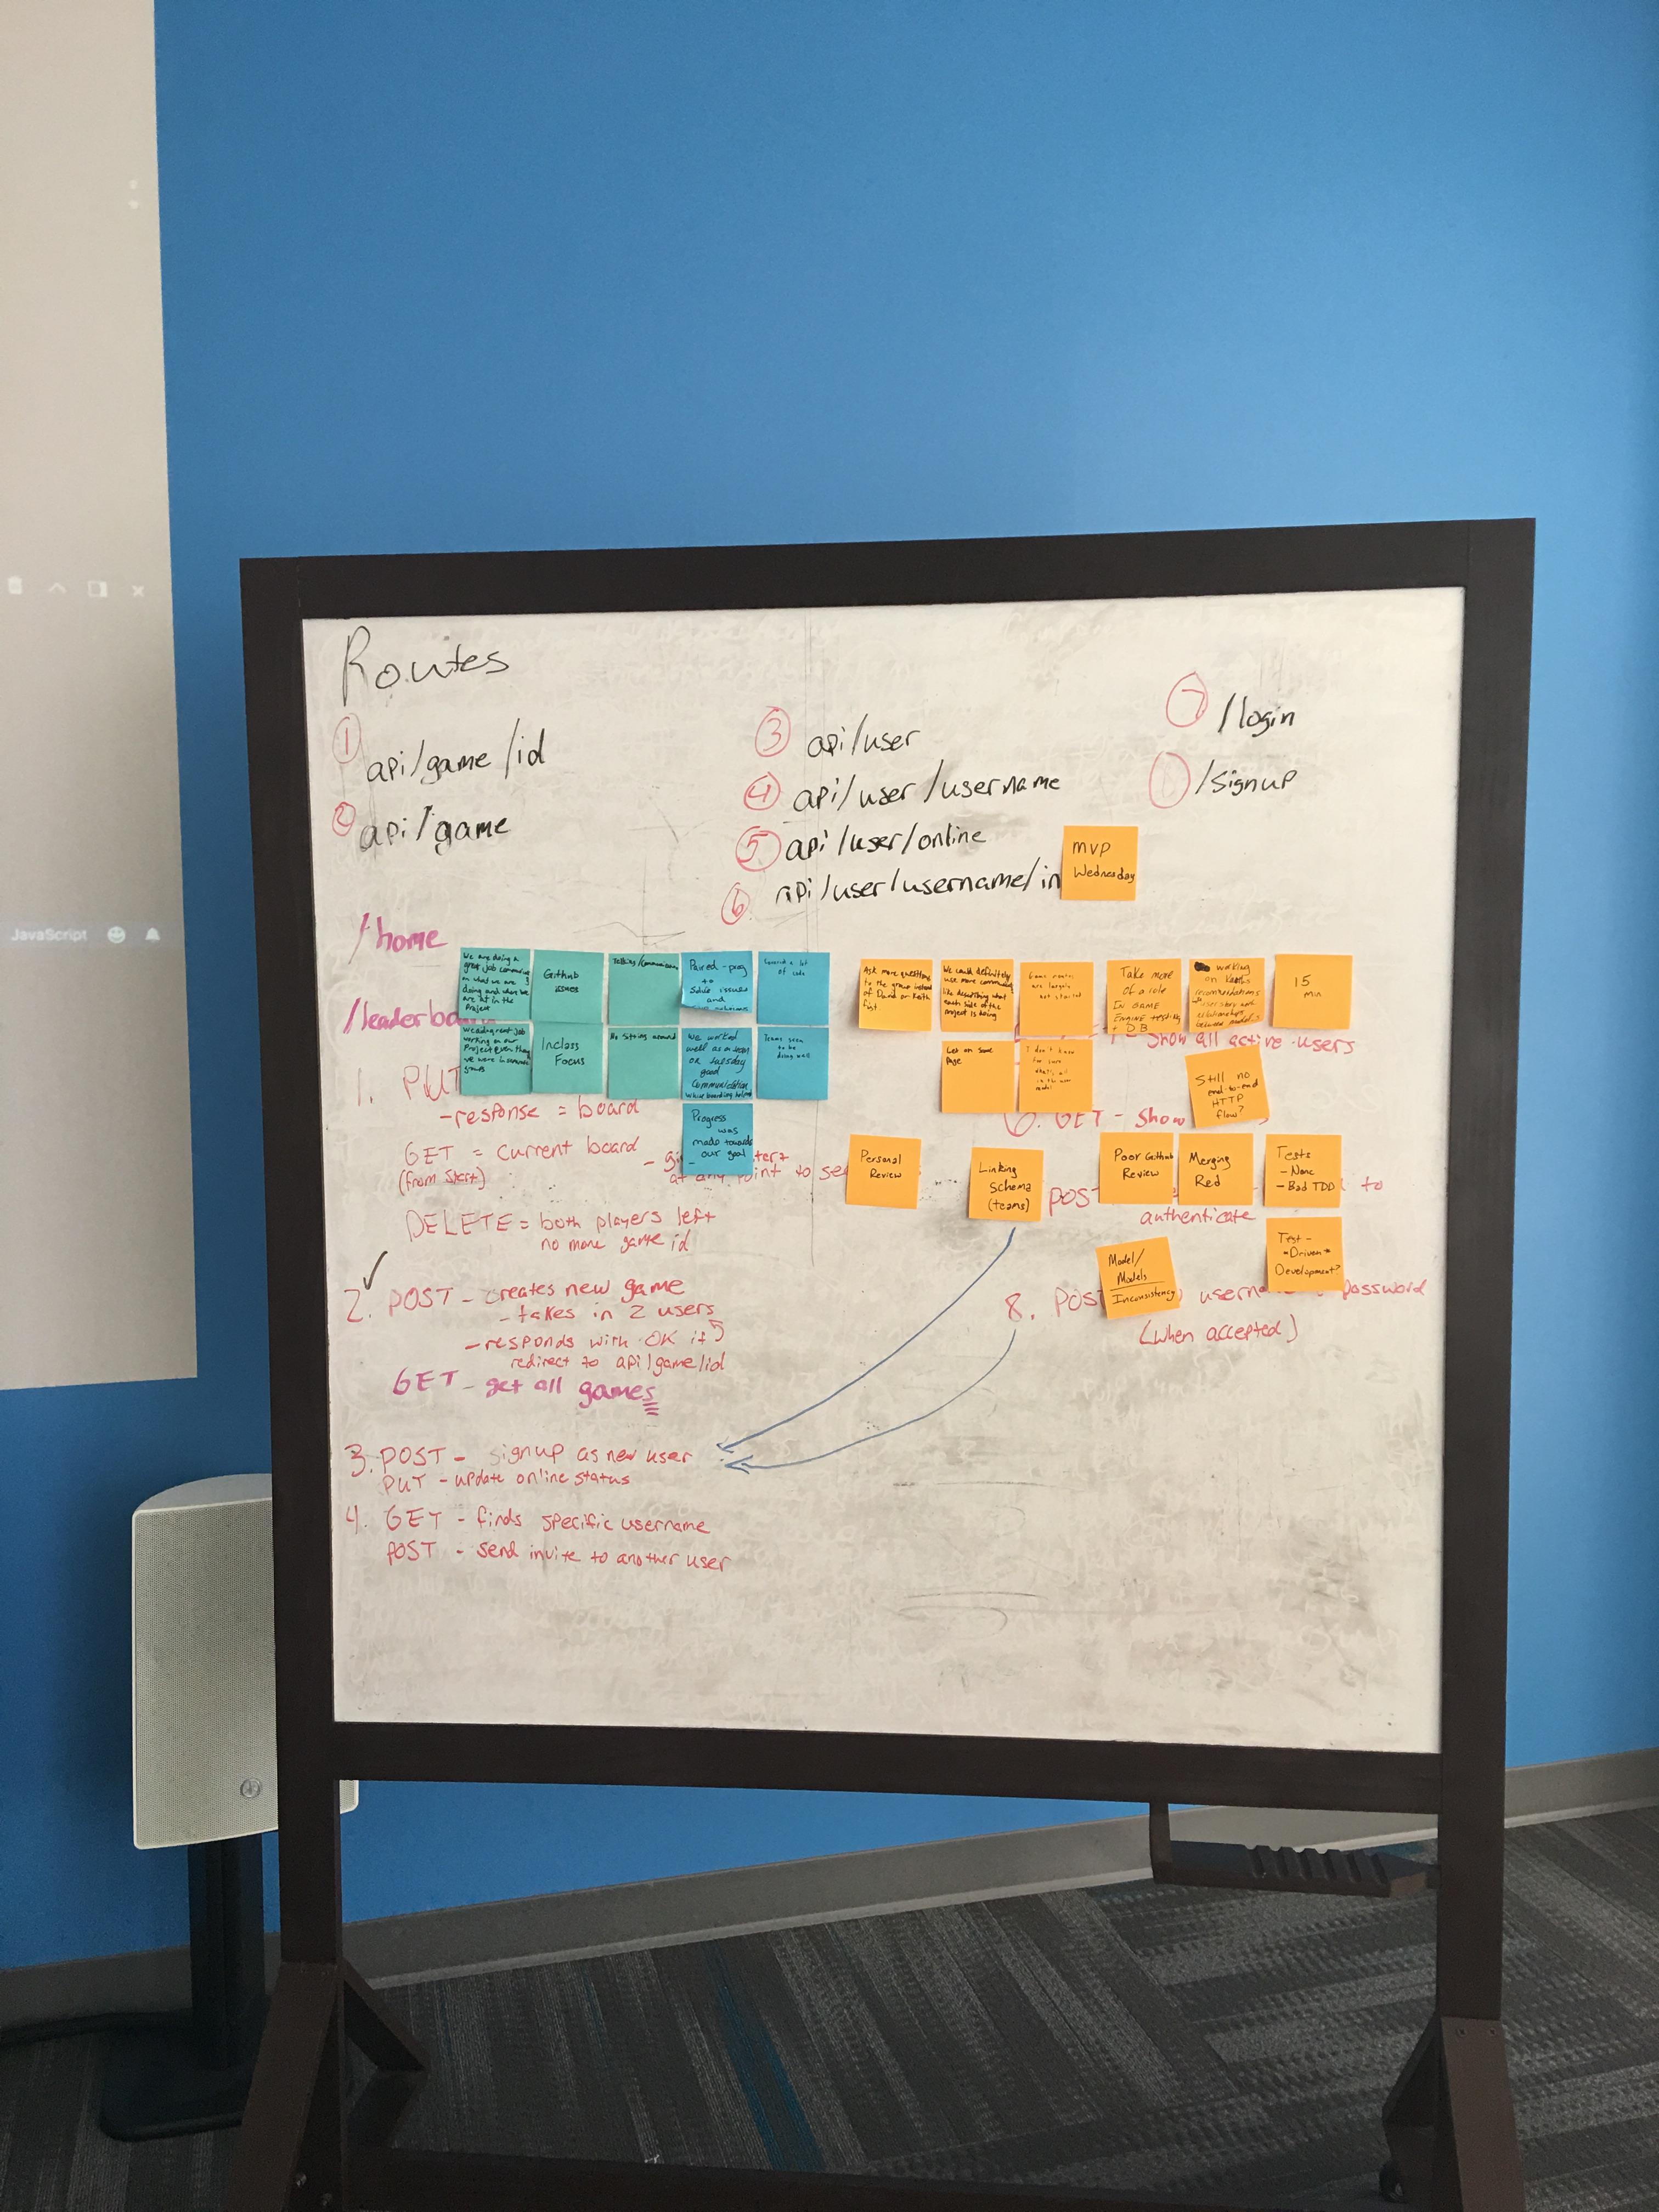 Routes
1
api/game/id
2
api/game
3
api/user
4
api/user/username
5
api/user/online
6
api/user/username/in
7
/login
/signup
MVP
Wednesday
/home
/leaderbo
JavaScript
We are doing a
great job
on what we are
doing and where we
are at in the
Project
Github
issues
Paired-prog
to
Solve issues
and
a lot
of code
We did great job
working on our
Project even though
we were in
groups
Inclass
Focus
No Sitting around
We worked
well as a team
on tuesday
good
Communication
White boarding helped
Teams seem
to be
doing well
Progress
was
made towards
our goal
Ask more questions
to the group instead
of David or Keith
first
We could definitely
use more
like describing what
each side of the
project is doing
Game routes
are largely
not started
Take more
of a role
IN GAME
ENGINE testing
+ D.B
working
on Keith's
recommendations
user story and
relationships
between models
15
min
Get on Same
page
I don't know
for sure
what's all
in the user
model
Still no
end-to-end
HTTP
flow?
Personal
Review
Linking
Schema
(teams)
Poor Github
Review
Merging
Red
Tests
- None
- Bad TDD
Model/
Models
Inconsistency
Test-
Driven
Development?
1. PUT
- response = board
GET = current board
(from start)
at any point to se
DELETE = both players left
no more game id
2. POST - creates new game
- takes in 2 users
- responds with OK if
redirect to api/game/id
GET - get all games
3. POST - signup as new user
PUT - update online status
4. GET - finds specific username
POST - send invite to another user
- show all active users
6. GET - Show
POST
to
authenticate
8. POST
password
(when accepted)